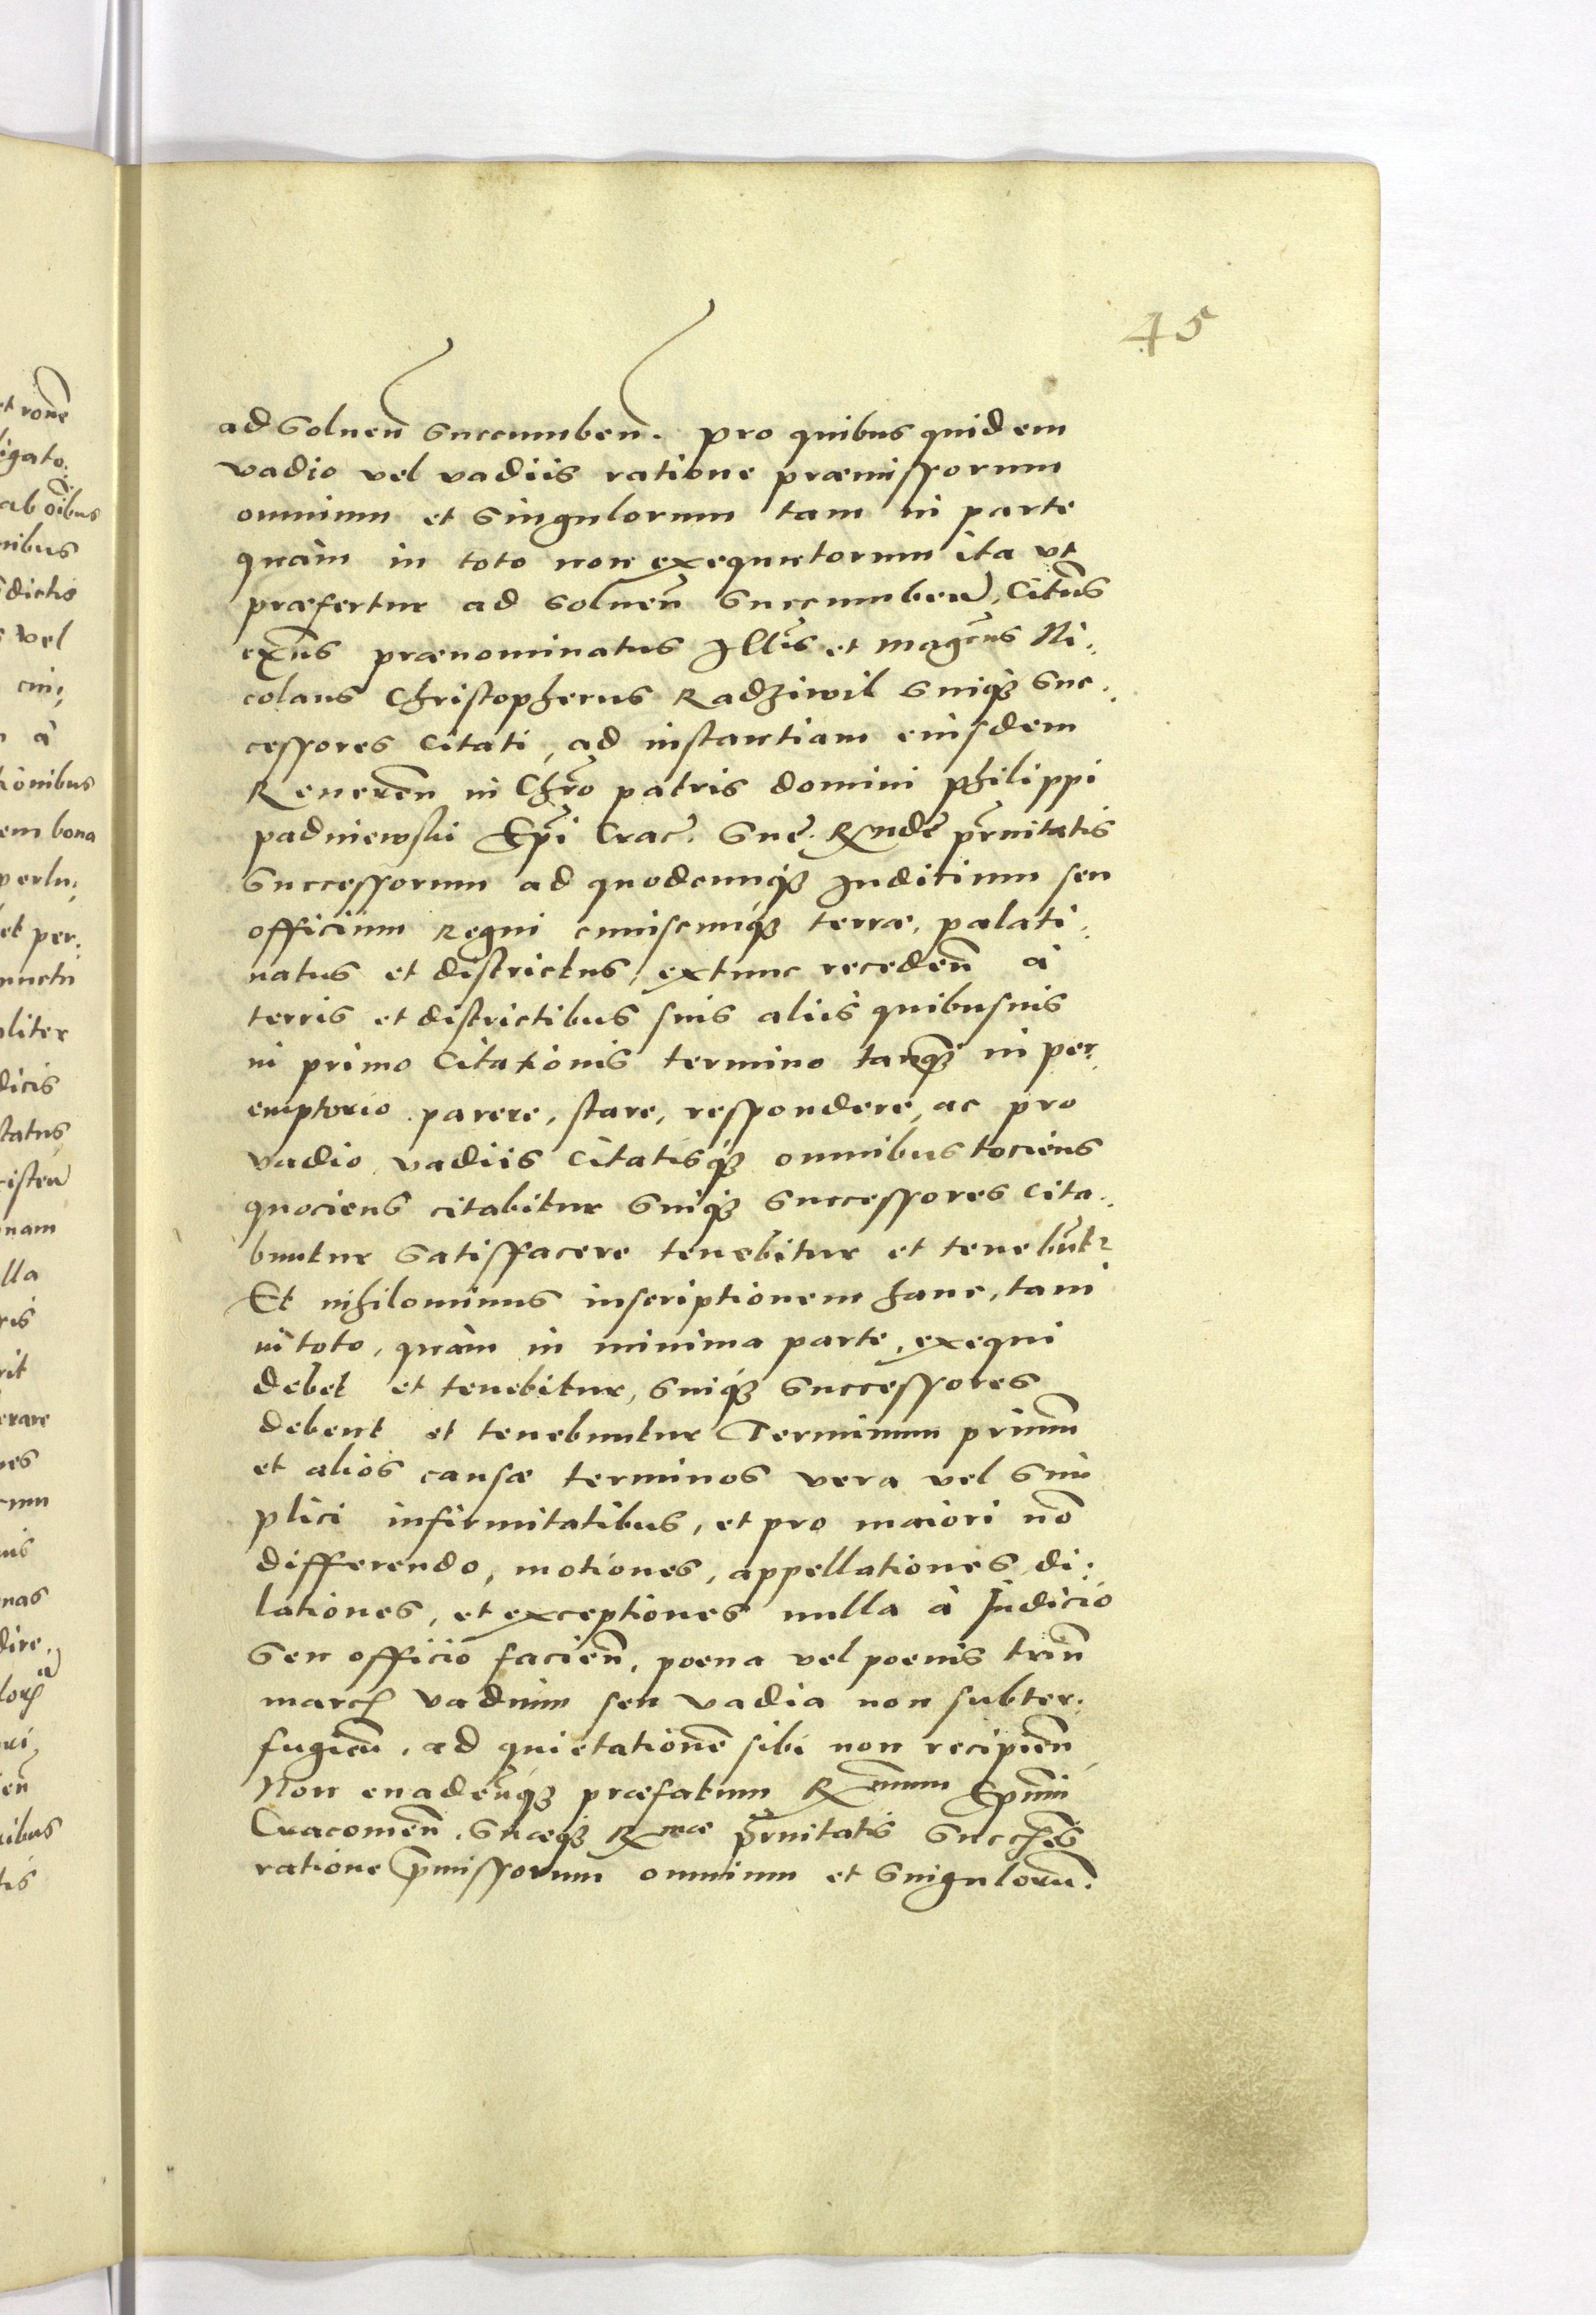 45
ad soluen succumben. pro quibus quidem
vadio vel vadiis ratione præmissorum
omnium et singulorum tam in parte
quàm in toto non exequutorum ita vt
præfertur ad soluen succumben, Citus
exns prænominatus Illris et magcus Ni:
colaus Christopherus Radziwil suiqꝫ suc:
cessores citati, ad instantiam eiusdem
Reueren in Chro patris domini Philippi
padniewski Epi Crac. sue. Rnde prnitatis
successorum ad quodcunqꝫ Iudicium seu
officium Regni cuiuscunqꝫ terræ, palati:
natus et districtus, extunc receden à
terris et districtibus suis aliis quibusuis
in primo Citationis termino tanqꝫ in per:
emptorio parere, stare, respondere, ac pro
vadio vadiis citatisqꝫ omnibus tociens
quociens citabitur suiqꝫ successores cita:
buntur satisfacere tenebitur et tenebunt
Et nihilominus inscriptionem hanc, tam
in toto, quàm in minima parte, exequi
debet et tenebitur, suiqꝫ successores
debent et tenebuntur Terminum primum
et alios causæ terminos vera vel sim
plici infirmitatibus, et pro maiori no
differendo, motiones, appellationes, di:
lationes, et exceptiones nulla à Iudicio
seu officio facien, poena vel poenis trin
march vadium seu vadia non subter:
fugien, ad quietatione sibi non recipien
Non euadenqꝫ præfatum Rmum Epum
Cracouien. suæqꝫ Rmæ prnitatis succes
ratione pmissorum omnium et singuloru.
et rone
ligato:
ab oibus
nibus
dictis
vel
à
tionibus
em bona
et per:
liter
dicis
status
nam
lla
ris
rit
erare
nes
nas
dire.
en
tis